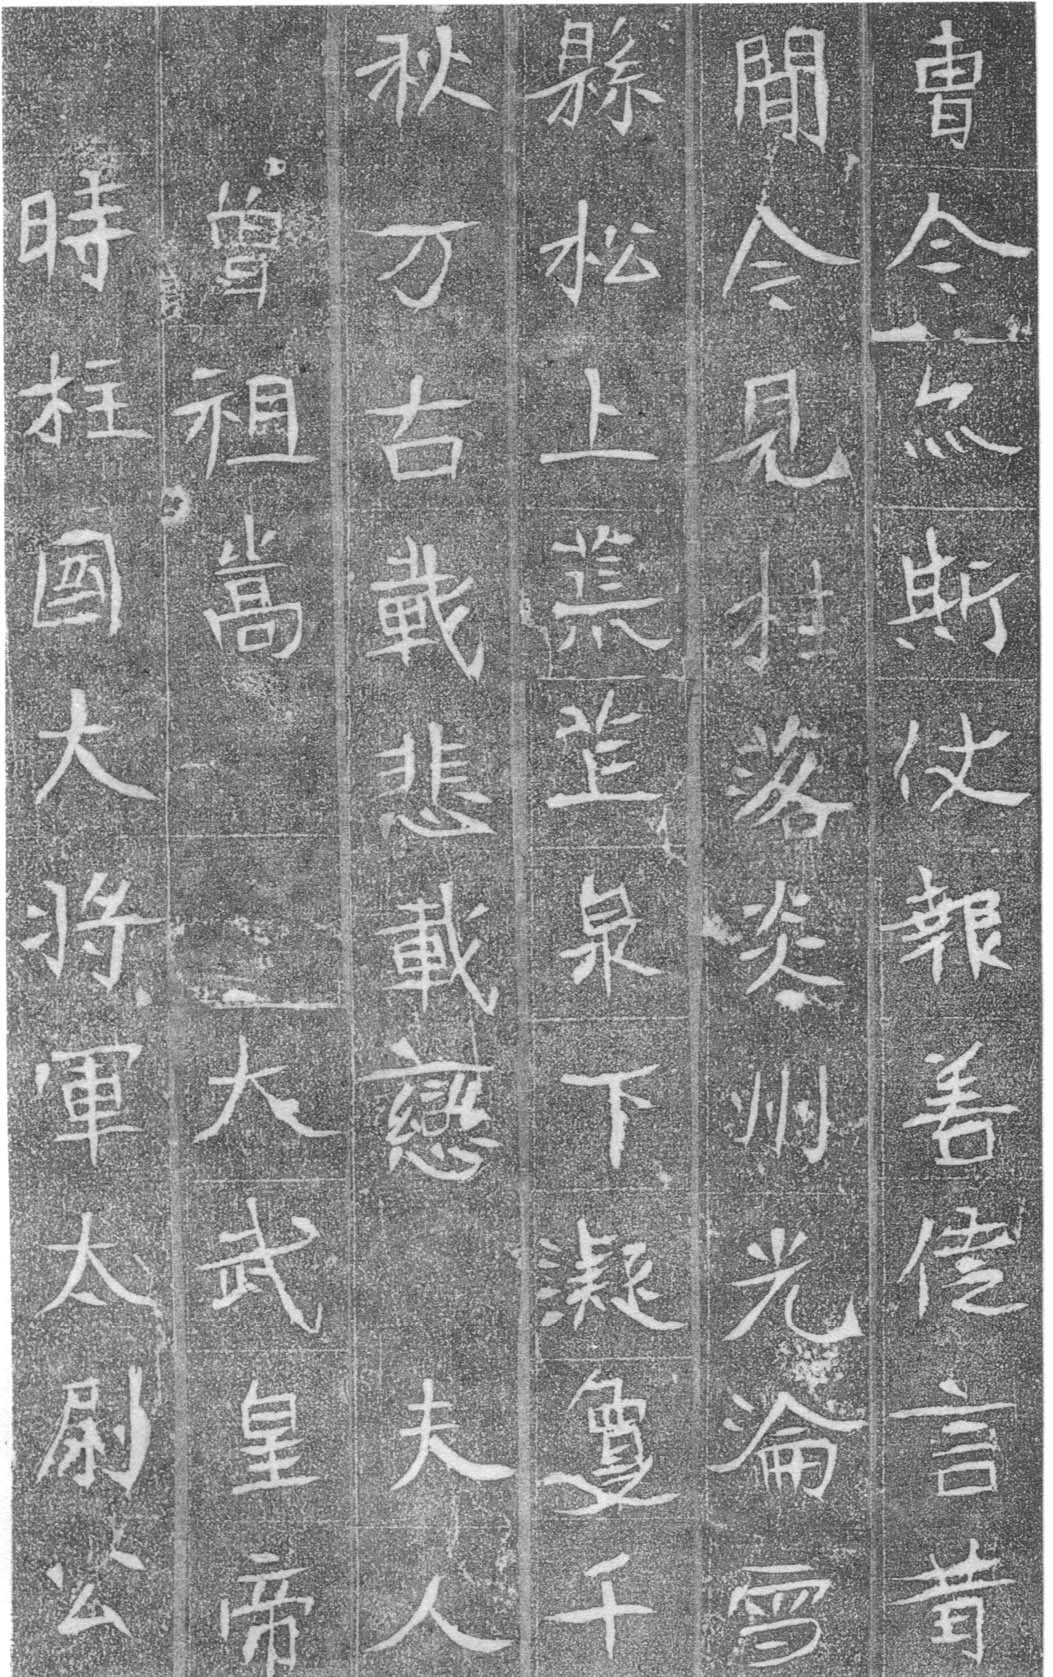 曺令名斯伏報善徒言昔
聞今見桂落炎州光淪雪
縣松上荒莚泉下凝尊千
秋万古載悲載戀夫人
曾祖嵩大武皇帝
時柱國大將軍太尉公